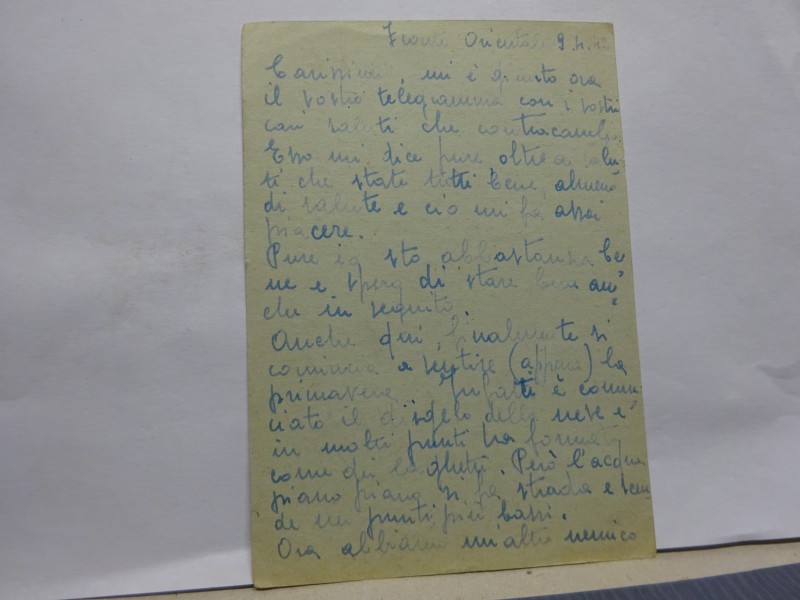 Fronte Orientale 9.4.42
Carissimi, mi è giunto ora
il vostro telegramma con i vostri
cari saluti che contracambio.
Esso mi dice pure, oltre ai salu
ti che state tutti bene, almeno
di salute e ciò mi fa assai
piacere.
Pure io sto abbastanza be
ne e spero di stare bene an"
che in seguito.
Anche qui, finalmente si
comincia a sentire (appena) la
primavera. Infatti è comin
ciato il disgelo della neve e
in molti punti ha formato
come dei laghetti. Però l'acqua
piano piano si fa strada e scen
de nei punti più bassi.
Ora abbiamo un'altro nemico